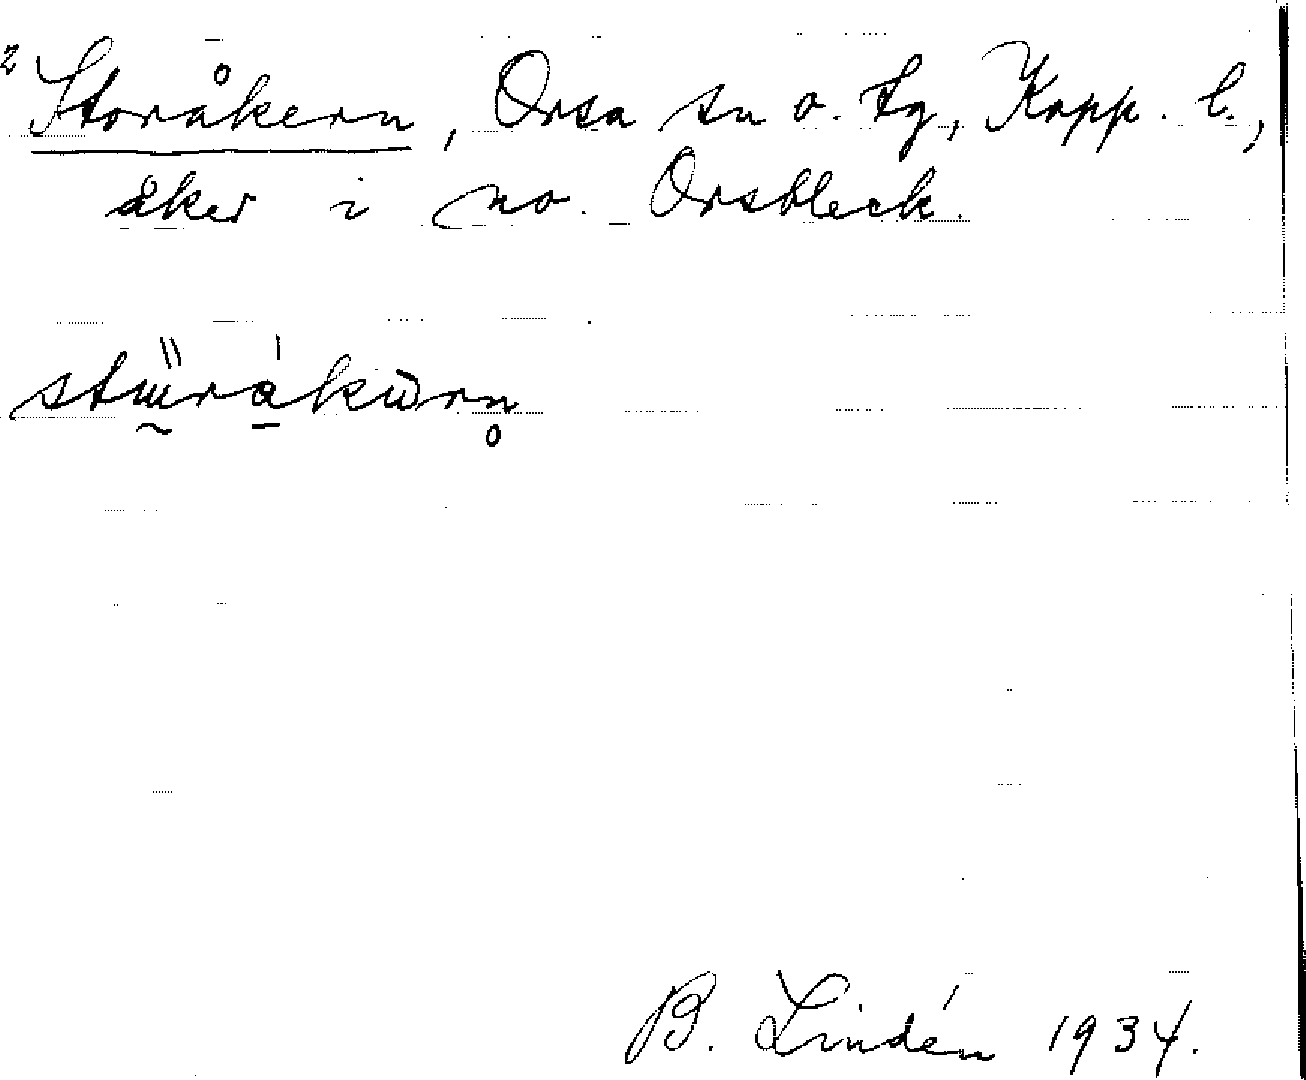 2 Storåkern, Orsa sn o. tg, Kopp. l.,
åker i no. Orsbleck.
stu̎rákurn̥
B. Lindén 1934.